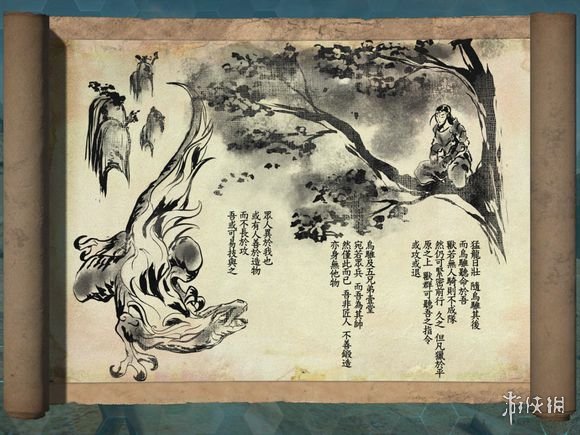 猛龍日壯 隨烏騅其後
而烏騅聽命於吾
獸若無人騎則不成隊
然仍可緊密前行 久之 但凡獵於平
原之上 獸群可聽吾之指令
或攻或退
烏騅及五兄弟壹堂
宛若眾兵 而吾為其帥
然僅此而已 吾非匠人 不善鍛造
亦身無他物
眾人異於我也
或有人善於造物
而不長於攻
吾或可易技與之
游侠网